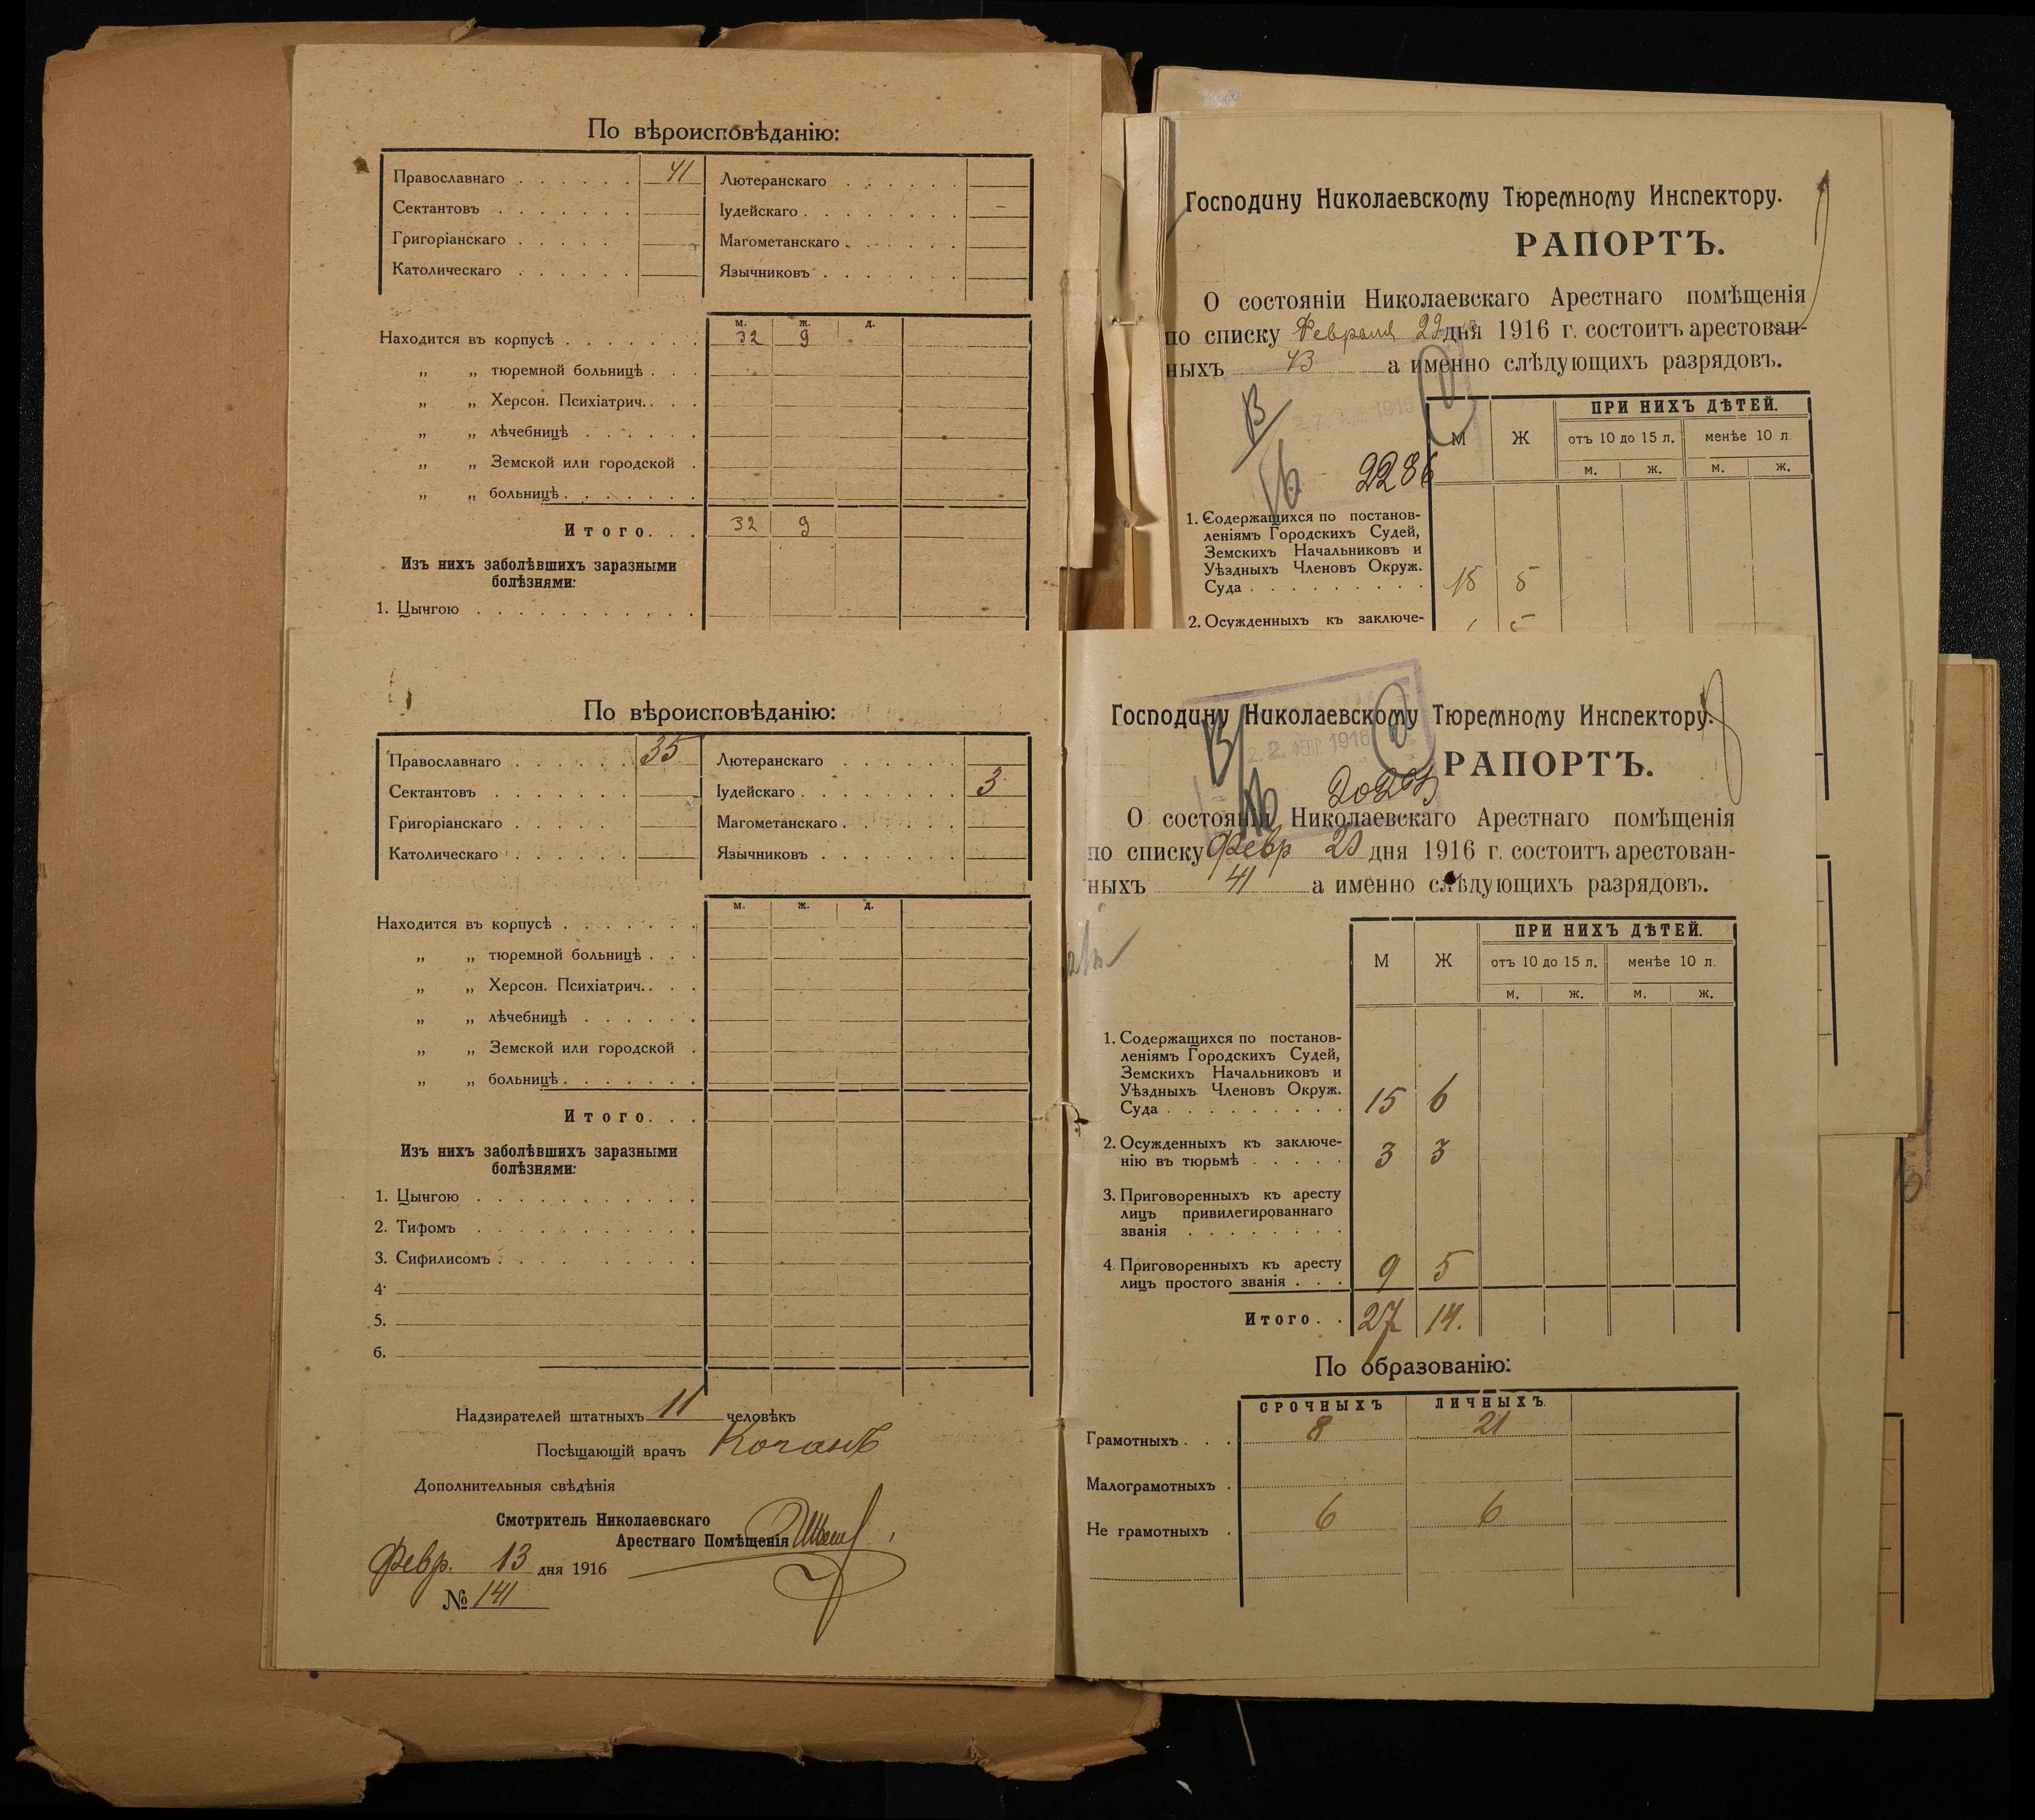 По вѣроисповѣданію:
Православнаго . . . . . . 41 Лютеранскаго . . . . . .
Сектантовъ . . . . . . . Іудейскаго . . . . . . . . –
Григоріанскаго . . . . . Магометанскаго . . . . . .
Католическаго . . . . . . Язычниковъ . . . . . . .
м. ж. д.
Находится въ корпусѣ . . . . . . . 32 9
„ „ тюремной больницѣ . . .
„ „ Херсон. Психіатрич. . . .
„ „ лѣчебницѣ . . . . . .
„ „ Земской или городской .
„ „ больницѣ . . . . . . .
Итого. . . 32 9
Изъ нихъ заболѣвшихъ заразными
болѣзнями:
1. Цынгою . . . . . . . . . . .
Господину Николаевскому Тюремному Инспектору.
РАПОРТЪ.
О состояніи Николаевскаго Арестнаго помѣщенія
по списку Февраля дня 1916 г. состоитъ арестован-
ныхъ 43 а именно слѣдующихъ разрядовъ.
1916
2286
М Ж ПРИ НИХЪ ДѢТЕЙ.
отъ 10 до 15 л. менѣе 10 л.
м. ж. м. ж.
1. Содержащихся по постанов-
леніямъ Городскихъ Судей,
Земскихъ Начальниковъ и
Уѣздныхъ Членовъ Окруж.
Суда . . . . . . . . . 5
2. Осужденныхъ къ заключе-
По вѣроисповѣданію:
Православнаго . . . . . . 35 Лютеранскаго . . . . . .
Сектантовъ . . . . . . . Іудейскаго . . . . . . . . 3
Григоріанскаго . . . . . Магометанскаго . . . . . .
Католическаго . . . . . . Язычниковъ . . . . . . .
м. ж. д.
Находится въ корпусѣ . . . . . . .
„ „ тюремной больницѣ . . .
„ „ Херсон. Психіатрич. . . .
„ „ лѣчебницѣ . . . . . .
„ „ Земской или городской .
„ „ больницѣ . . . . . . .
Итого. . .
Изъ нихъ заболѣвшихъ заразными
болѣзнями:
1. Цынгою . . . . . . . . . . .
2. Тифомъ . . . . . . . . . . .
3. Сифилисомъ . . . . . . . . .
4.
5.
6.
Надзирателей штатныхъ 11 человѣкъ
Посѣщающій врачъ
Дополнительныя свѣдѣнія
Смотритель Николаевскаго
Арестнаго Помѣщенія
Февр. 13 дня 1916
№ 141
Господину Николаевскому Тюремному Инспектору.
22 ФЕВР. 1916
РАПОРТЪ.
О состояніи Николаевскаго Арестнаго помѣщенія
по списку Февр 20 дня 1916 г. состоитъ арестован-
ныхъ 41 а именно слѣдующихъ разрядовъ.
М Ж ПРИ НИХЪ ДѢТЕЙ.
отъ 10 до 15 л. менѣе 10 л.
м. ж. м. ж.
1. Содержащихся по постанов-
леніямъ Городскихъ Судей,
Земскихъ Начальниковъ и
Уѣздныхъ Членовъ Окруж.
Суда . . . . . . . . . 15 6
2. Осужденныхъ къ заключе-
нію въ тюрьмѣ . . . . . 3 3
3. Приговоренныхъ къ аресту
лицъ привилегированнаго
званія . . . . . . . .
4. Приговоренныхъ къ аресту
лицъ простого званія . . . 9 5
Итого. . 27 14.
По образованію:
СРОЧНЫХЪ ЛИЧНЫХЪ.
Грамотныхъ . . . 8 21
Малограмотныхъ .
Не грамотныхъ . 6 6